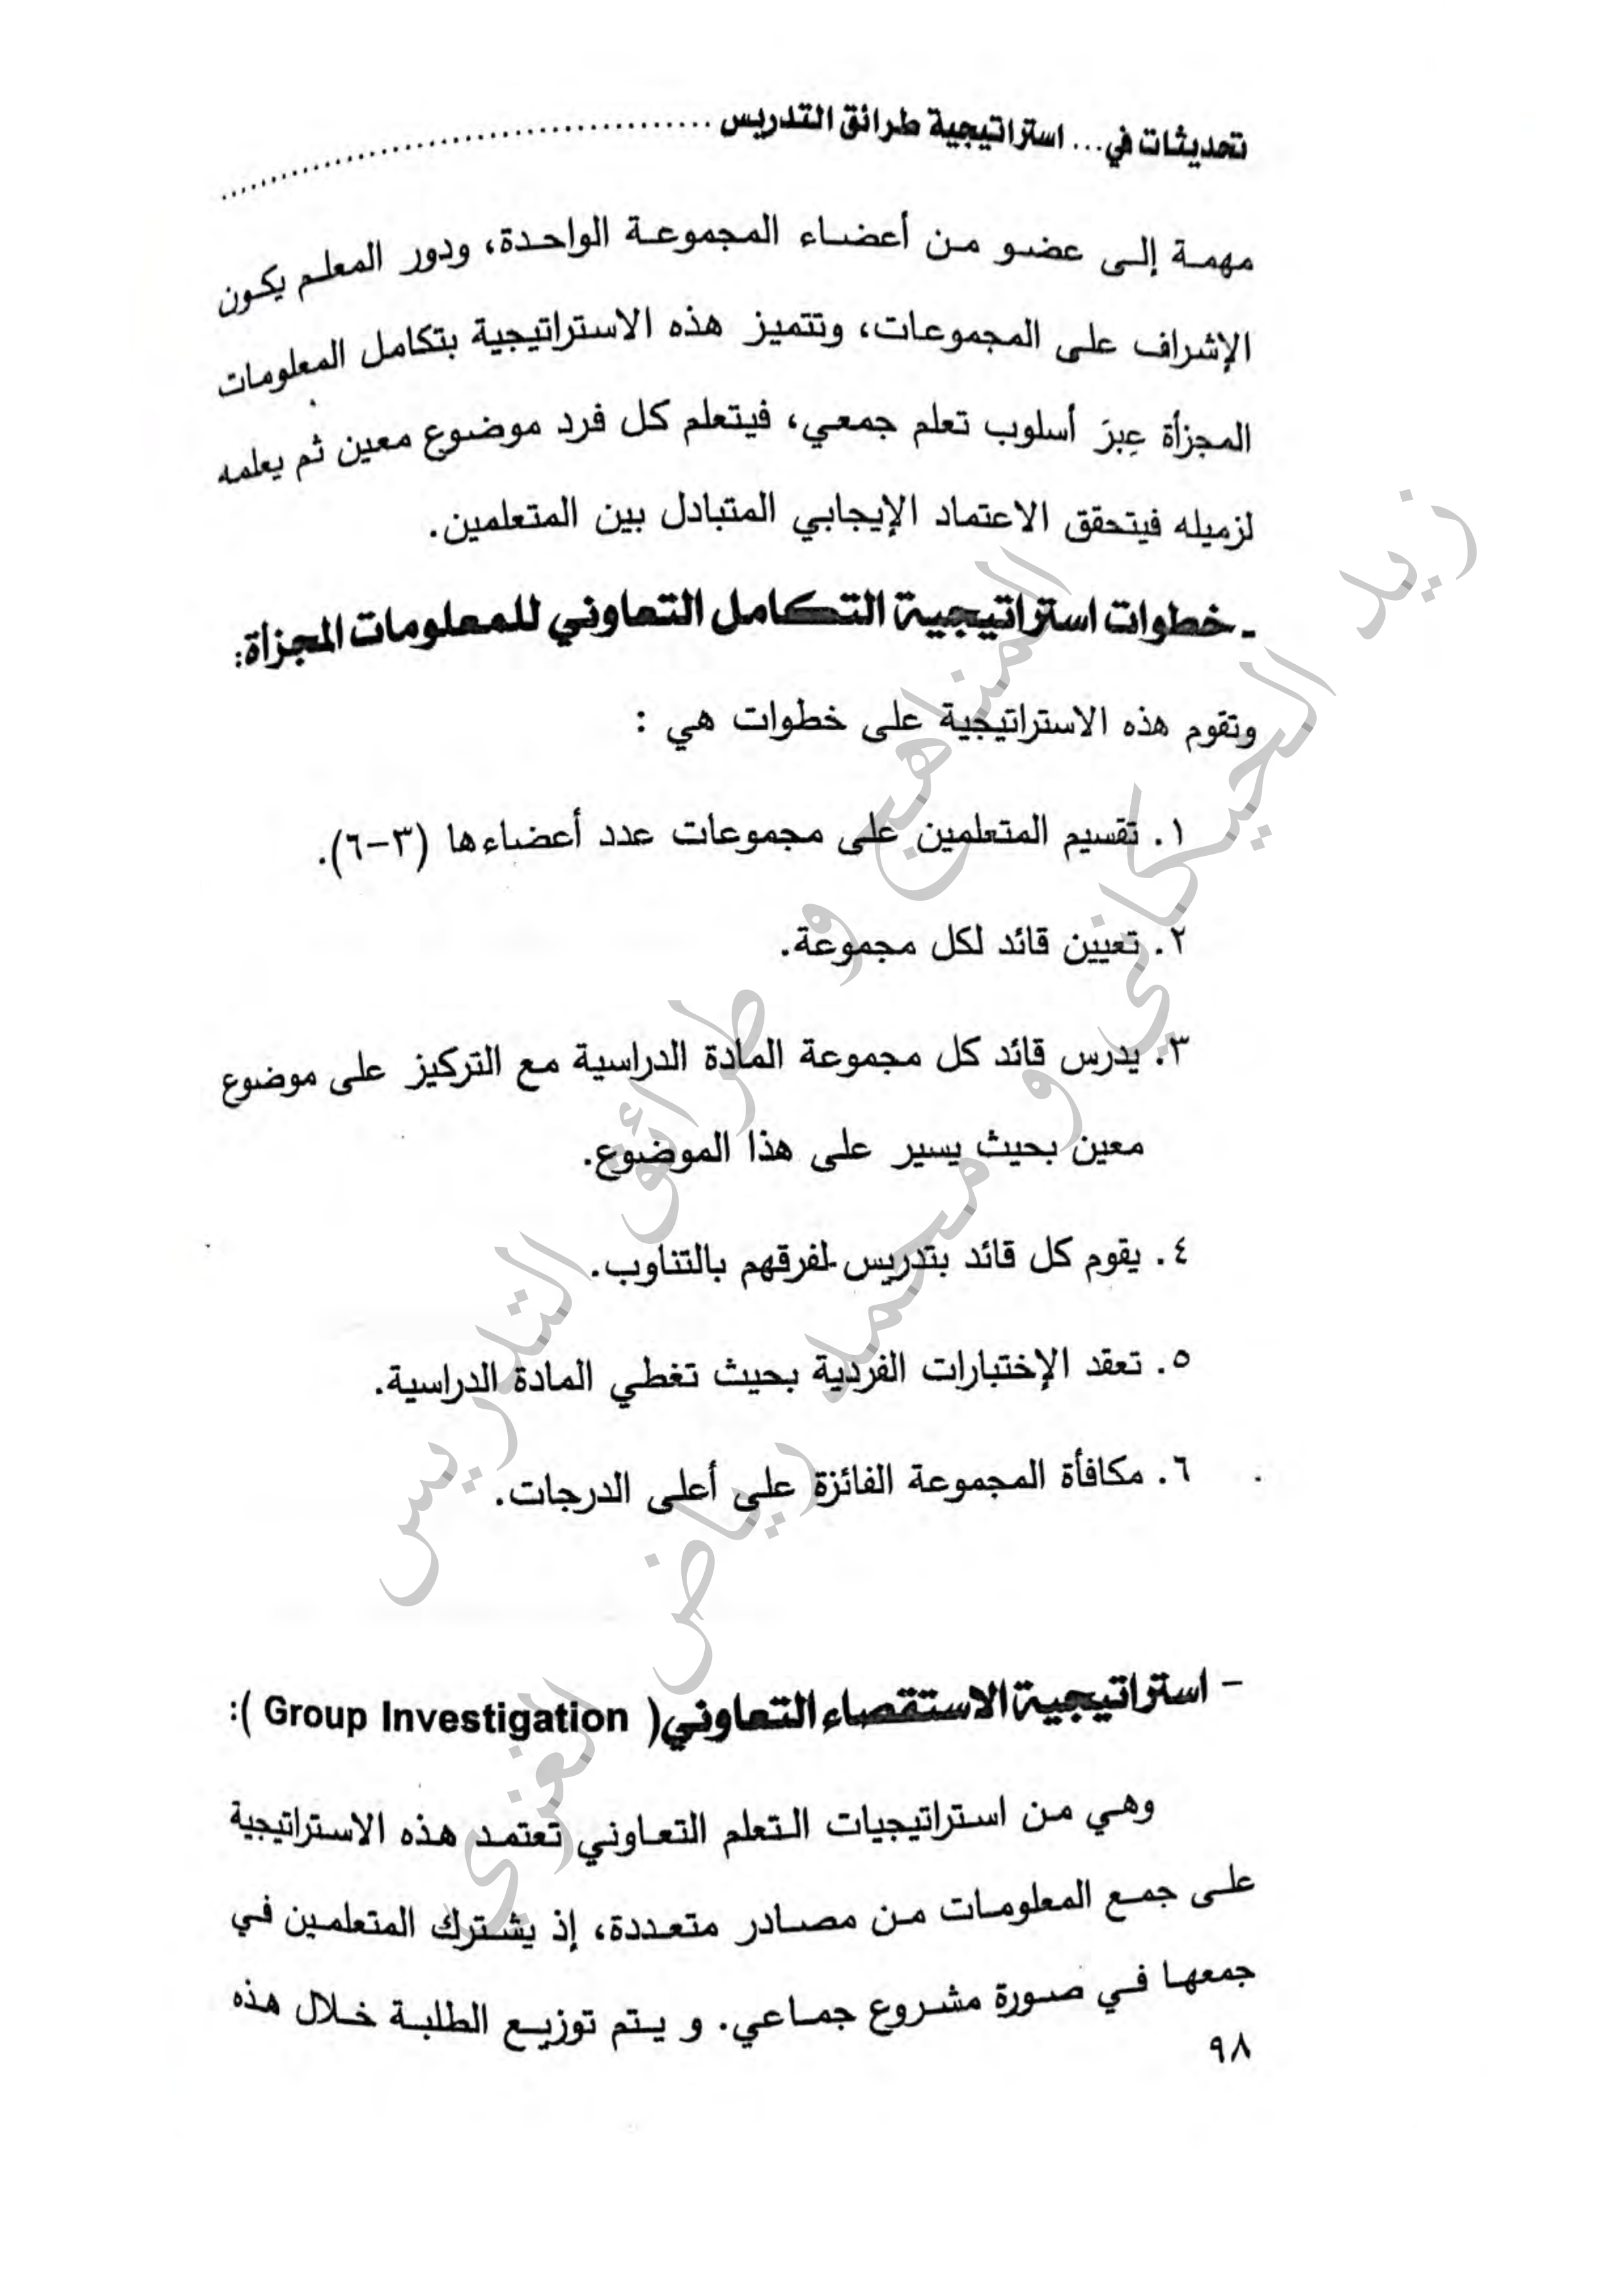 تحديثات في... استراتيجية طرائق التدريس ..............................
مهمة إلى عضو من أعضاء المجموعة الواحدة، ودور المعلم يكون
الإشراف على المجموعات، وتتميز هذه الاستراتيجية بتكامل المعلومات
المجزأة عِبرَ أسلوب تعلم جمعي، فيتعلم كل فرد موضوع معين ثم يعلمه
لزميله فيتحقق الاعتماد الإيجابي المتبادل بين المتعلمين.
- خطوات استراتيجية التكامل التعاوني للمعلومات المجزأة:
وتقوم هذه الاستراتيجية على خطوات هي :
١. تقسيم المتعلمين على مجموعات عدد أعضاءها (٣-٦).
٢. تعيين قائد لكل مجموعة.
٣. يدرس قائد كل مجموعة المادة الدراسية مع التركيز على موضوع
معين بحيث يسير على هذا الموضوع.
٤. يقوم كل قائد بتدريس لفرقهم بالتناوب.
٥. تعقد الإختبارات الفردية بحيث تغطي المادة الدراسية.
٦. مكافأة المجموعة الفائزة على أعلى الدرجات.
- استراتيجية الاستقصاء التعاوني( Group Investigation ):
وهي من استراتيجيات التعلم التعاوني تعتمد هذه الاستراتيجية
على جمع المعلومات من مصادر متعددة، إذ يشترك المتعلمين في
جمعها في صورة مشروع جماعي. و يتم توزيع الطلبة خلال هذه
٩٨
المناهج و طرائق التدريس
زيد الحيكاني و محمد رياض الغزي